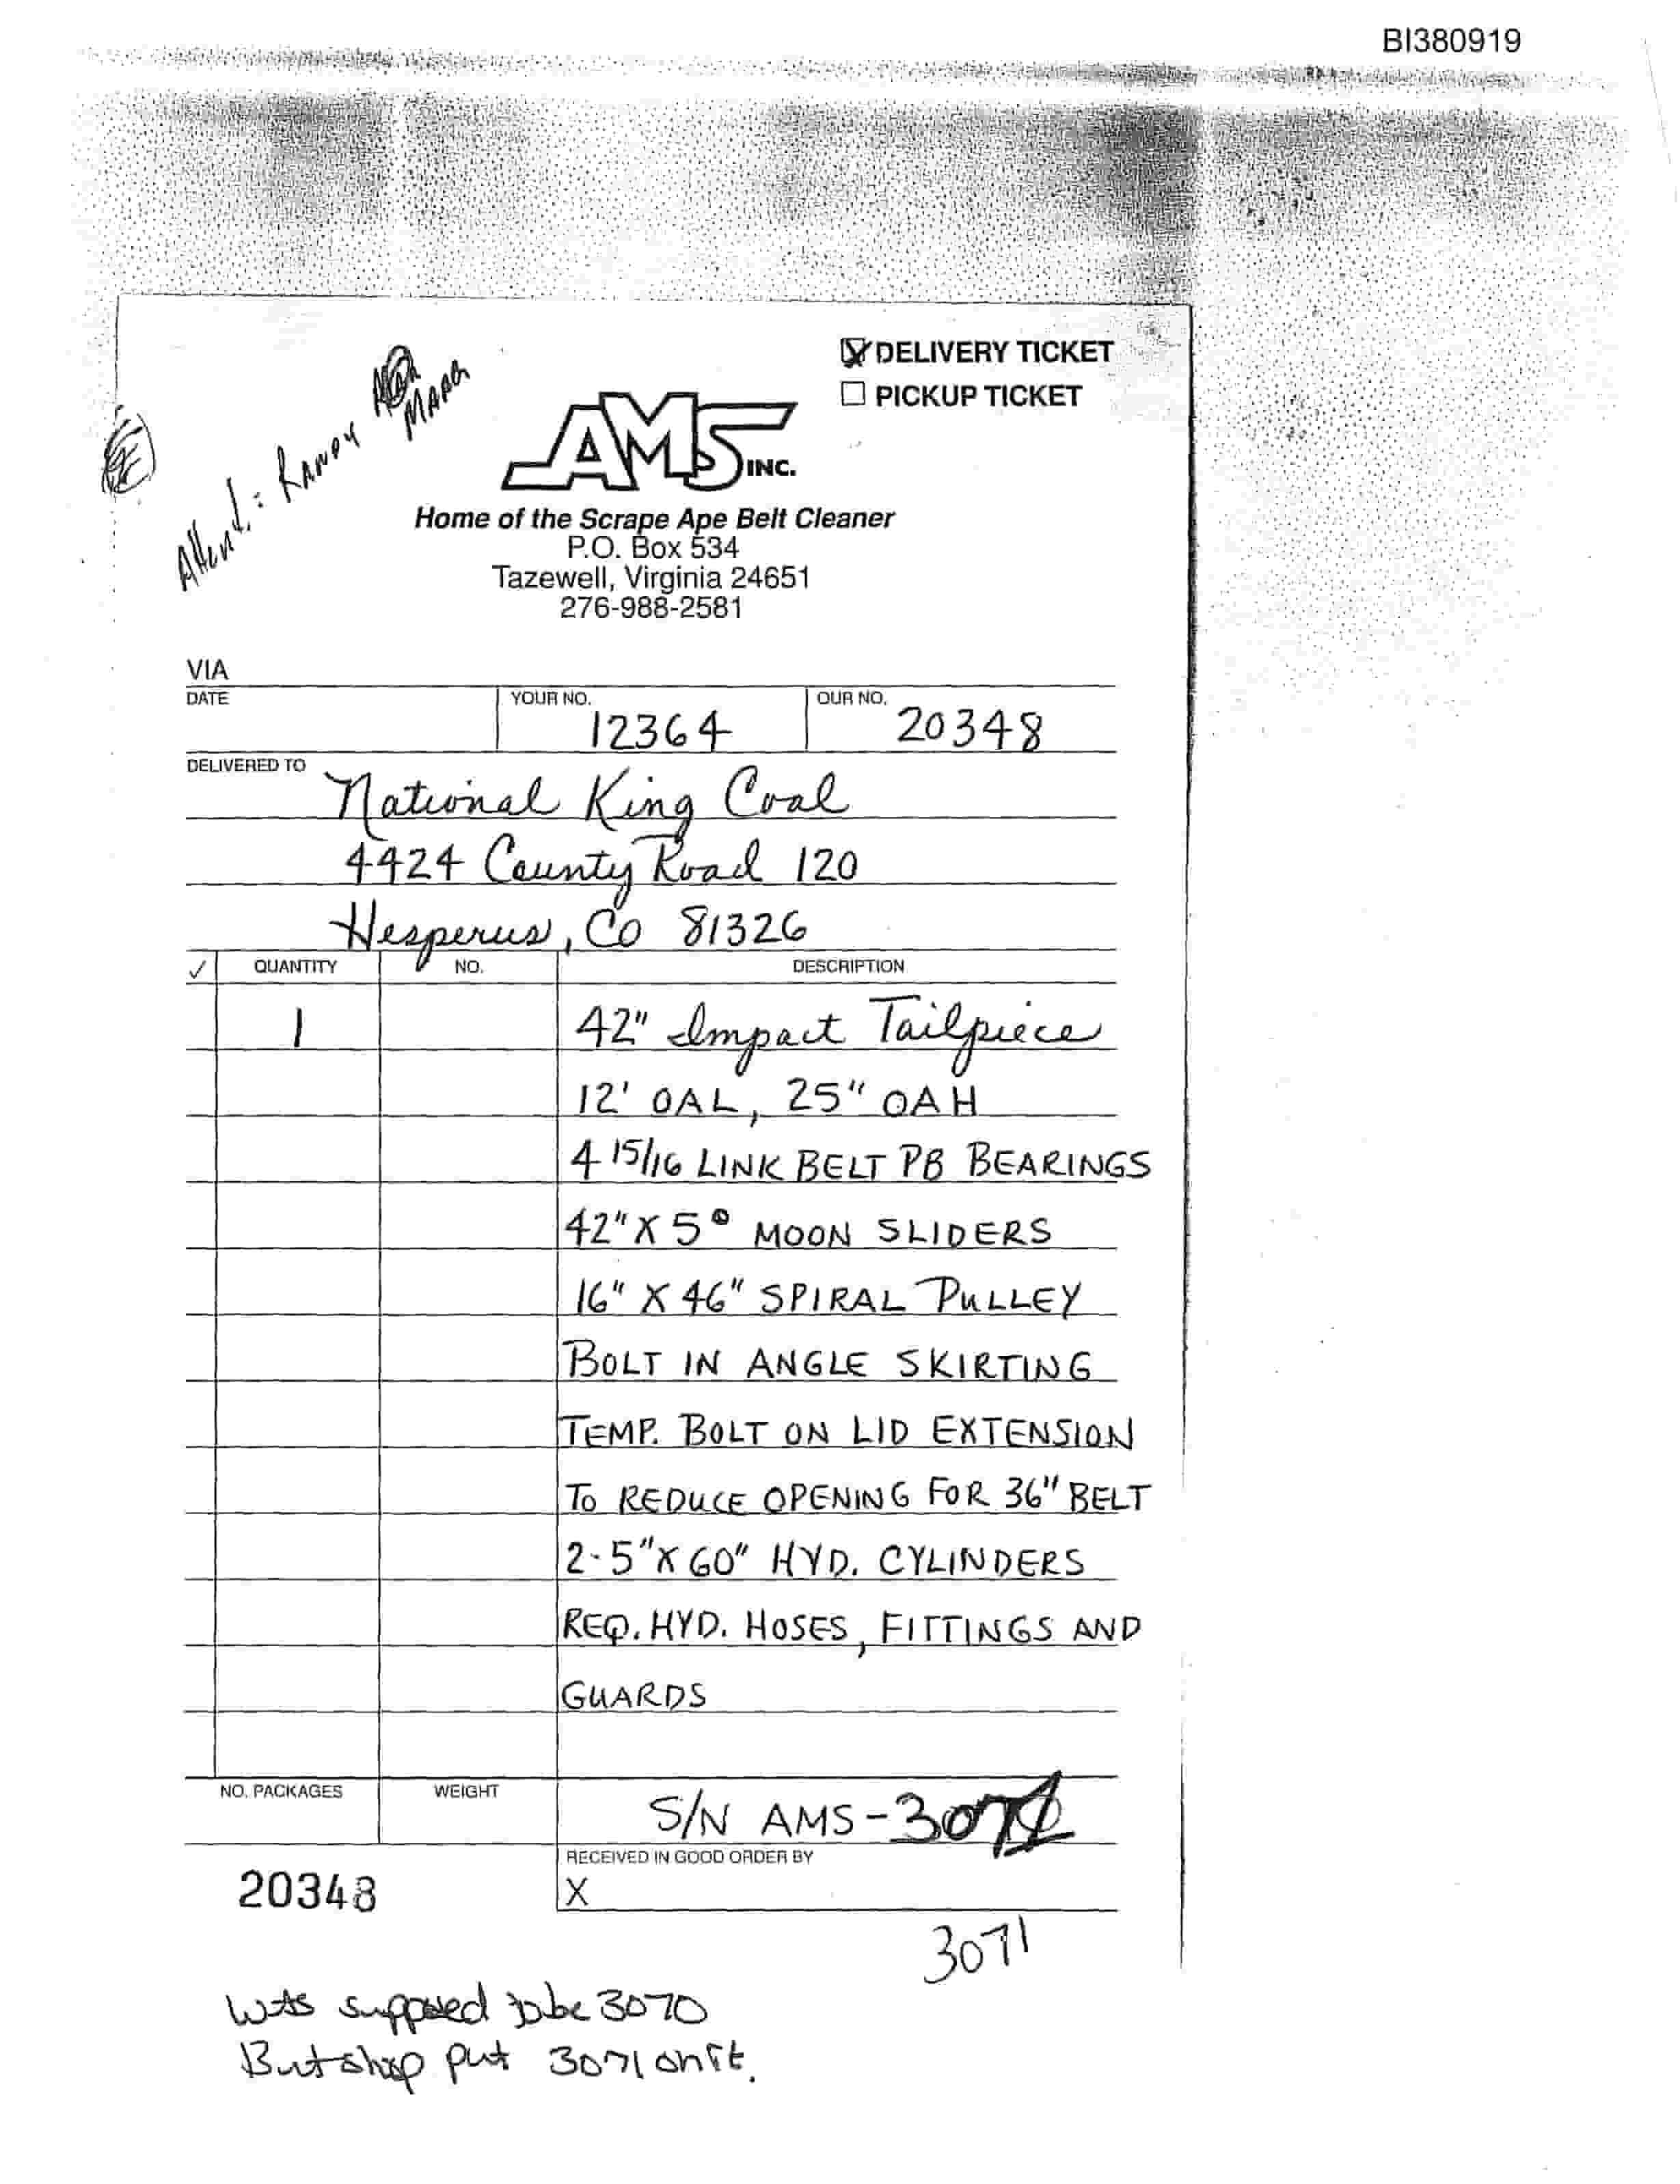 BI380919
☒ DELIVERY TICKET
☐ PICKUP TICKET
Attent.: RANDY
AMS INC.
Home of the Scrape Ape Belt Cleaner
P.O. Box 534
Tazewell, Virginia 24651
276-988-2581
VIA
DATE YOUR NO. 12364 OUR NO. 20348
DELIVERED TO National King Coal
4424 County Road 120
Hesperus, Co 81326
✓ QUANTITY NO. DESCRIPTION
1 42" Impact Tailpiece
12' OAL, 25" OAH
4 15/16 LINK BELT PB BEARINGS
42" X 5° MOON SLIDERS
16" X 46" SPIRAL PULLEY
BOLT IN ANGLE SKIRTING
TEMP. BOLT ON LID EXTENSION
TO REDUCE OPENING FOR 36" BELT
2-5" X 60" HYD. CYLINDERS
REQ. HYD. HOSES, FITTINGS AND
GUARDS
NO. PACKAGES WEIGHT S/N AMS-3071
RECEIVED IN GOOD ORDER BY
20348 X
3071
Was supposed to be 3070
But shop put 3071 on it.